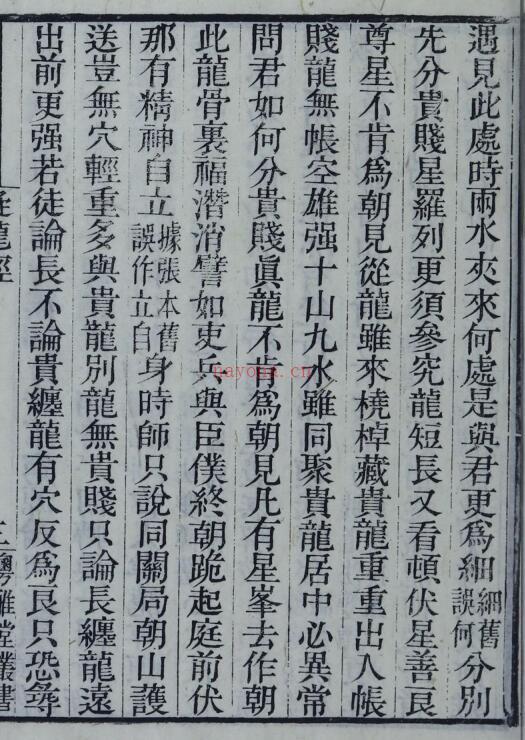 遇見此處時兩水夾來何處是與君更為細細舊誤何分別
先分貴賤星羅列更須參究龍短長又看頓伏星善良
尊星不肯為朝見從龍雖來橈棹藏貴龍重重出入帳
賤龍無帳空雄强十山九水雖同聚貴龍居中必異常
問君如何分貴賤眞龍不肯為朝見凡有星峯去作朝
此龍骨裏福潛消譬如吏兵與臣僕終朝跪起庭前伏
那有精神自立據張本舊誤作立自身時師只說同關局朝山護
送豈無穴輕重多與貴龍別龍無貴賤只論長纏龍遠
出前更强若徒論長不論貴纏龍有穴反為良只恐尋
龍經
粤雅堂叢書
nayona.cn